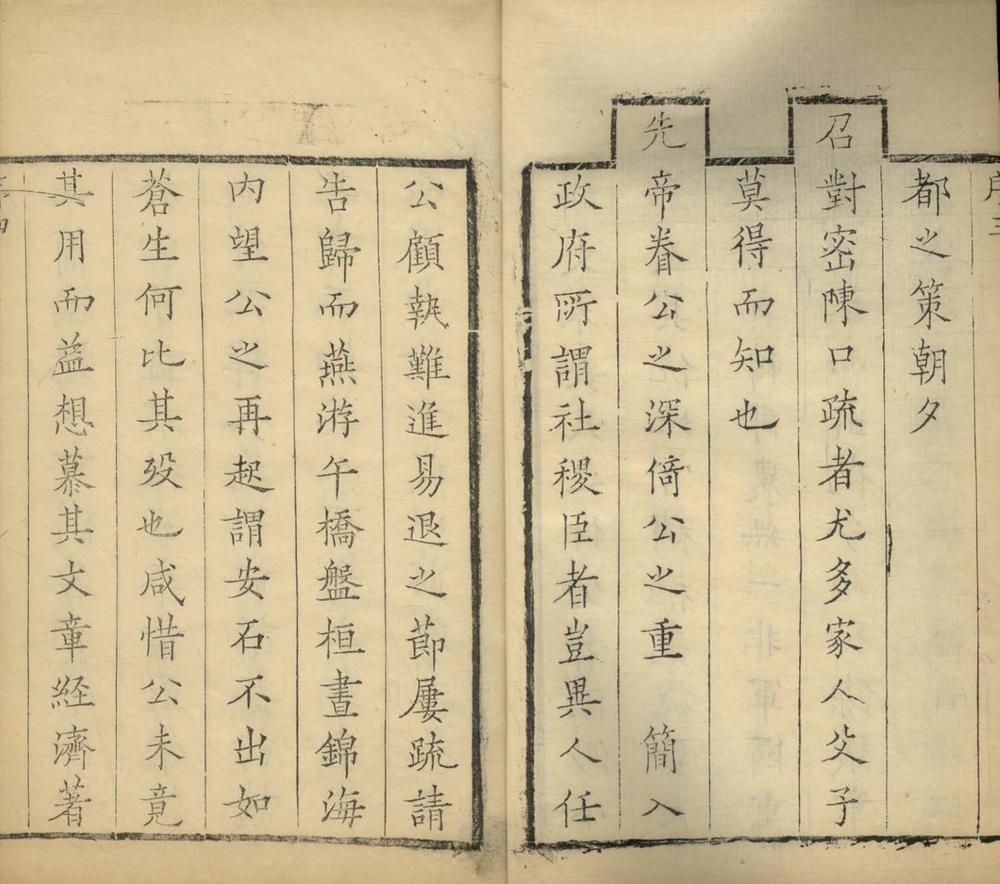 序三
都之策朝夕
召對密陳口疏者尤多家人父子
莫得而知也
先帝眷公之深倚公之重　簡入
政府所謂社稷臣者豈異人任
公顧執難進易退之節屢疏請
告歸而燕游午橋盤桓晝錦海
内望公之再起謂安石不出如
蒼生何比其歿也咸惜公未竟
其用而益想慕其文章経濟著